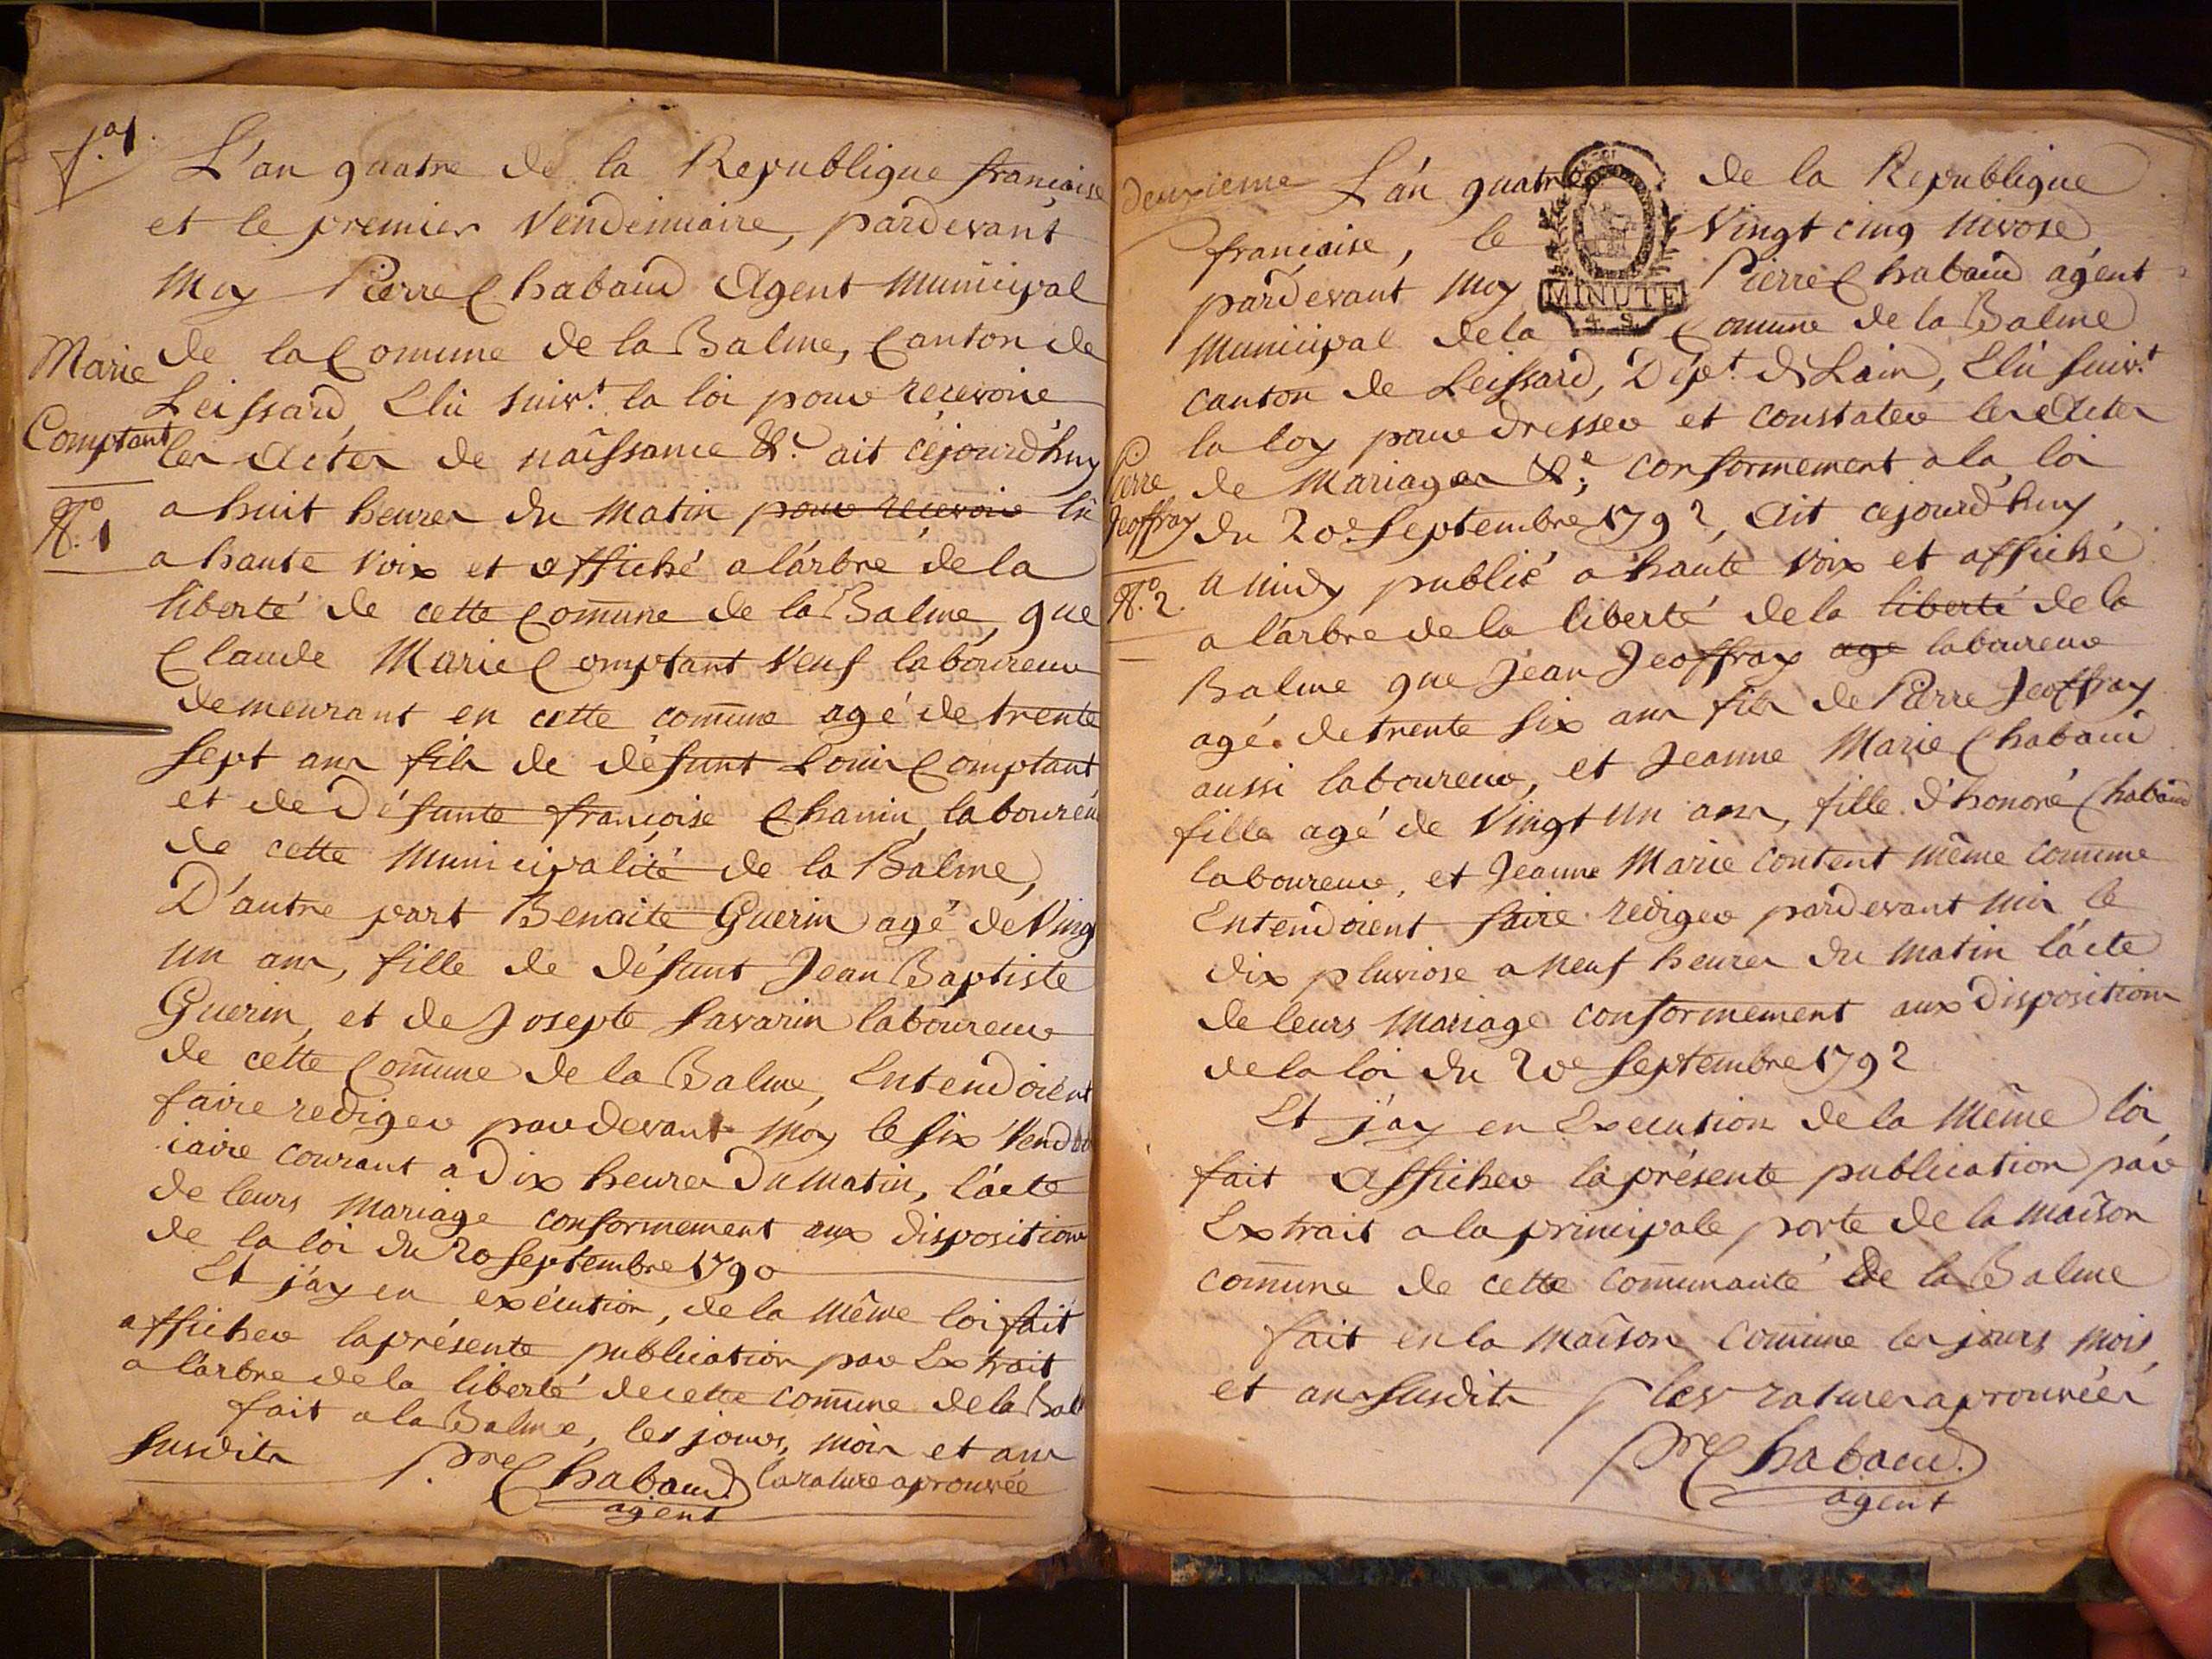 L'an quatre de la Republique française
et le premier Vendemiaire, pardevant
Moy Pierre Chabaud Agent Municipal
Marie
de la Comune de la Balme, Canton de
Leissard, Elu suivt. la loi pour recevoir
Comptant
les Actes de naîssance &c. ait cejourd'huy
No. 1
a huit heures du Matin pour recevoir lû
a haute voix et affiché a l'arbre de la
liberté de cette Com̃une de la Balme, que
Claude Marie Comptant Veuf laboureur
demeurant en cette com̃une agé de trente
sept ans fils de défunt Louis Comptant
et de Défunte françoise Chanin, laboureu
de cette Municipalité de la Balme,
D'autre part Benaite Guerin agé de Ving
un ans, fille de défunt Jean Baptiste
Guerin, et de Josepte Savarin laboureur
de cette Com̃une de la Balme, Entendoient
faire rediger pardevant Moy le six Vendem
iaire courant a Dix heures Du Matin, l'acte
de leurs Mariage conformement aux dispositions
de la loi du 20 Septembre 1790
Et j'ay en exécution, de la Même loi fait
afficher la présente publication par Extrait
a l'arbre de la liberté de cette com̃une de la Bal
fait a la Balme, les jours, mois et ans
susdits Pre Chabaud la rature aprouvée
agent
deuxieme
L'an quatre de la Republique
française, le Vingt cinq Nivose
pardevant Moy Pierre Chabaud agent
MINUTE
Municipal de la Comune de la Balme
Canton de Leissard, Dépt. de Lain, Elu suivt.
la loy pour dresser et constater les Actes
Pierre
de Mariages &c; conformement a la loi
Jeoffray
du 20e Septembre 1792, Ait cejourd'huy
No. 2.
a Midy publié a haute voix et affiché
a l'arbre de la liberté de la liberté de la
Balme que Jean Jeoffray age laboureur
agé de trente six ans fils de Pierre Jeoffray
aussi laboureur, et Jeanne Marie Chabaud
fille agé de Vingt un ans, fille d'honoré Chabaud
laboureur, et Jeanne Marie Content même comune
Entendoient faire rediger pardevant Moi le
dix pluviose a neuf heures du matin l'acte
de leurs Mariage conformement aux Dispositions
de la loi du 20e Septembre 1792
Et j'ay en Execution de la Même loi
fait afficher la présente publication par
Extrait a la principale porte de la maîson
com̃une de cette com̃unauté de la Balme
fait en la maîson Comune les jours mois
et an susdits les ratures aprouvées
Pre Chabaud.
agent